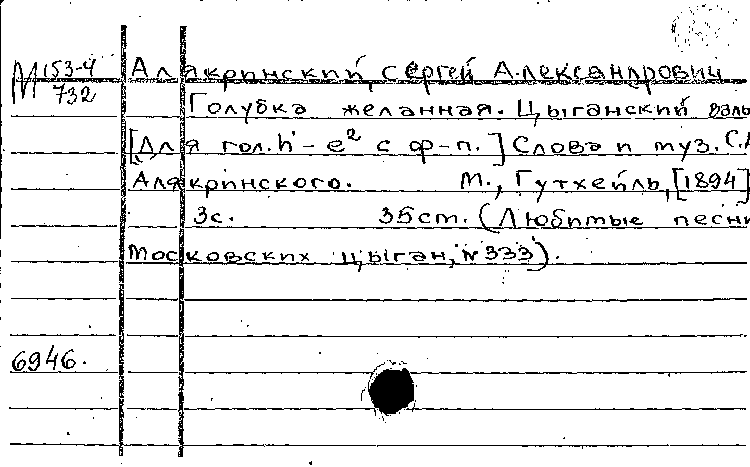 М 153-4
732
Алякринский, Сергей Александрович
Голубка желанная. Цыганский валь
[Для гол. h - e² с ф-п.] Слова и муз. С.А
Алякринского. М., Гутхейль, [1894]
3с. 35cm. (Любимые песни
московских цыган, № 333).
6946.